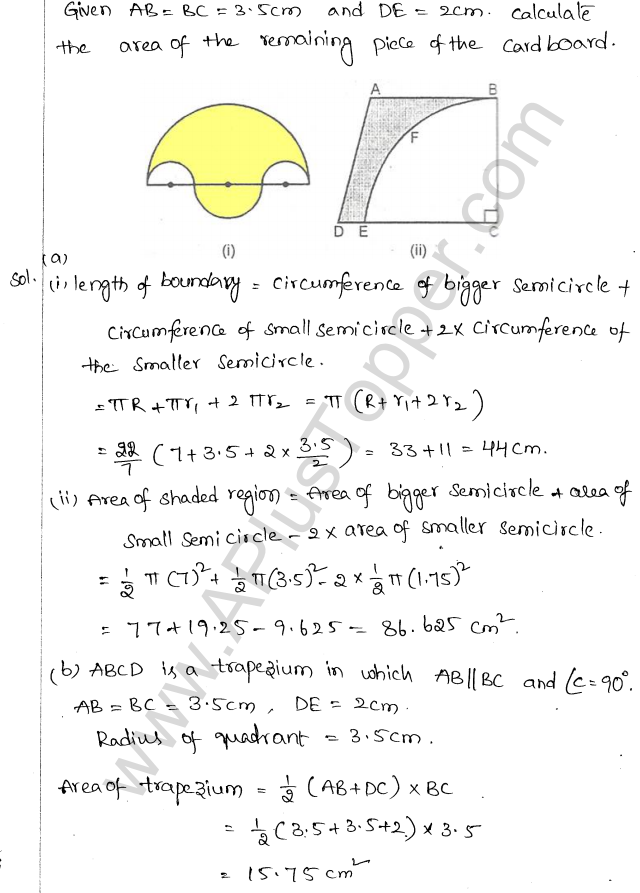 Given AB = BC = 3.5cm and DE = 2cm. Calculate
the area of the remaining piece of the cardboard.
A B
F
D E C
(i) (ii)
(a)
Sol. (i) length of boundary = circumference of bigger semicircle +
circumference of small semicircle + 2 x circumference of
the smaller semicircle.
= πR + πr₁ + 2 πr₂ = π (R + r₁ + 2r₂)
= 22/7 (7 + 3.5 + 2 x 3.5/2) = 33 + 11 = 44 cm.
(ii) Area of shaded region = Area of bigger semicircle + area of
small semicircle - 2 x area of smaller semicircle.
= 1/2 π (7)² + 1/2 π (3.5)² - 2 x 1/2 π (1.75)²
= 77 + 19.25 - 9.625 = 86.625 cm².
(b) ABCD is a trapezium in which AB || BC and ∠C = 90°.
AB = BC = 3.5cm, DE = 2cm.
Radius of quadrant = 3.5cm.
Area of trapezium = 1/2 (AB + DC) x BC
= 1/2 (3.5 + 3.5 + 2) x 3.5
= 15.75 cm²
www.APlusTopper.com